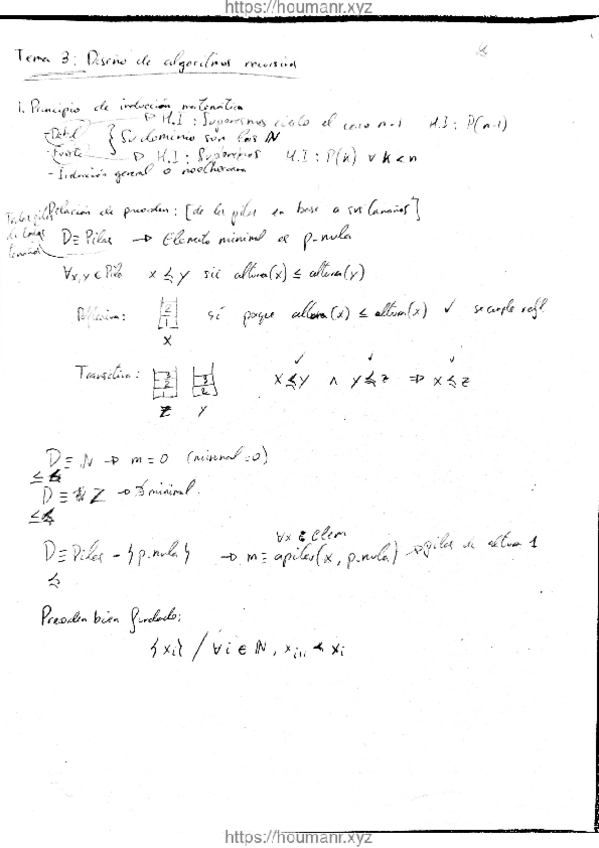 https://houmanr.xyz
Tema 3: Diseño de algoritmos recursivos
1. Principio de inducción matemática
→ H.I : Suponemos cierto el caso n-1 H.I : P(n-1)
- Débil
} Su dominio son los ℕ
- Fuerte → H.I : Suponemos H.I : P(k) ∀ k < n
- Inducción general o noetheriana
Relación de preorden: [de las pilas en base a sus tamaños]
Todas las pilas de todos tamaños
D ≡ Pilas → Elemento minimal es p-nula
∀x,y ∈ Pila x ≼ y sii altura(x) ≤ altura(y)
Reflexiva: 2 1 sí porque altura(x) ≤ altura(x) ✓ se cumple refl.
x
Transitiva: x ≼ y ∧ y ≼ z ⇒ x ≼ z
z y
D ≡ ℕ → m = 0 (minimal = 0)
≤
D ≡ Z → ∄ minimal.
≤
∀x ∈ Elem
D ≡ Pilas - {p-nula} → m ≡ apilar(x, p-nula) → pilas de altura 1
≼
Preorden bien fundado:
{xi} / ∀ i ∈ ℕ, xi+1 ≺ xi
https://houmanr.xyz